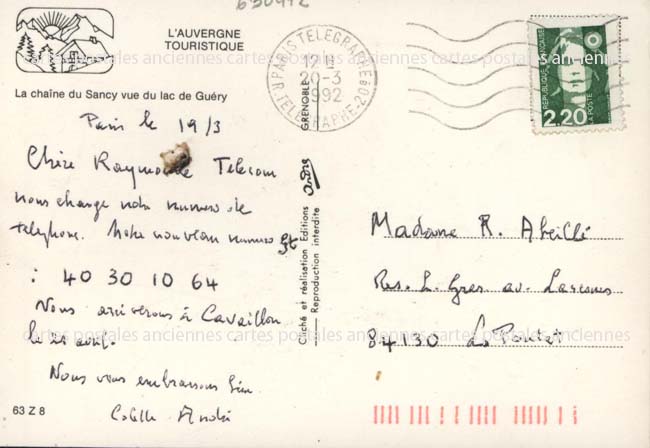 630472
L'AUVERGNE
TOURISTIQUE
La chaîne du Sancy vue du lac de Guéry
Paris le 19/3
Chère Raymonde Telecom
nous change notre numero de
telephone. Notre nouveau numero est
: 40 30 10 64
Nous arriverons à Cavaillon
le 21 août.
Nous vous embrassons bien
Colette André
63 Z 8
GRENOBLE
Cliché et réalisation Editions
Reproduction interdite
andré
R. PARIS TELEGRAPHE
20-3
1992
R. TELEGRAPHE-20è
REPUBLIQUE FRANÇAISE
LA POSTE
2,20
Madame R. Abeillé
Res. L. Gras av.
84130 Le Pontet
cartes postales anciennes cartes postales anciennes cartes postales anciennes
cartes postales anciennes cartes postales anciennes cartes postales anciennes